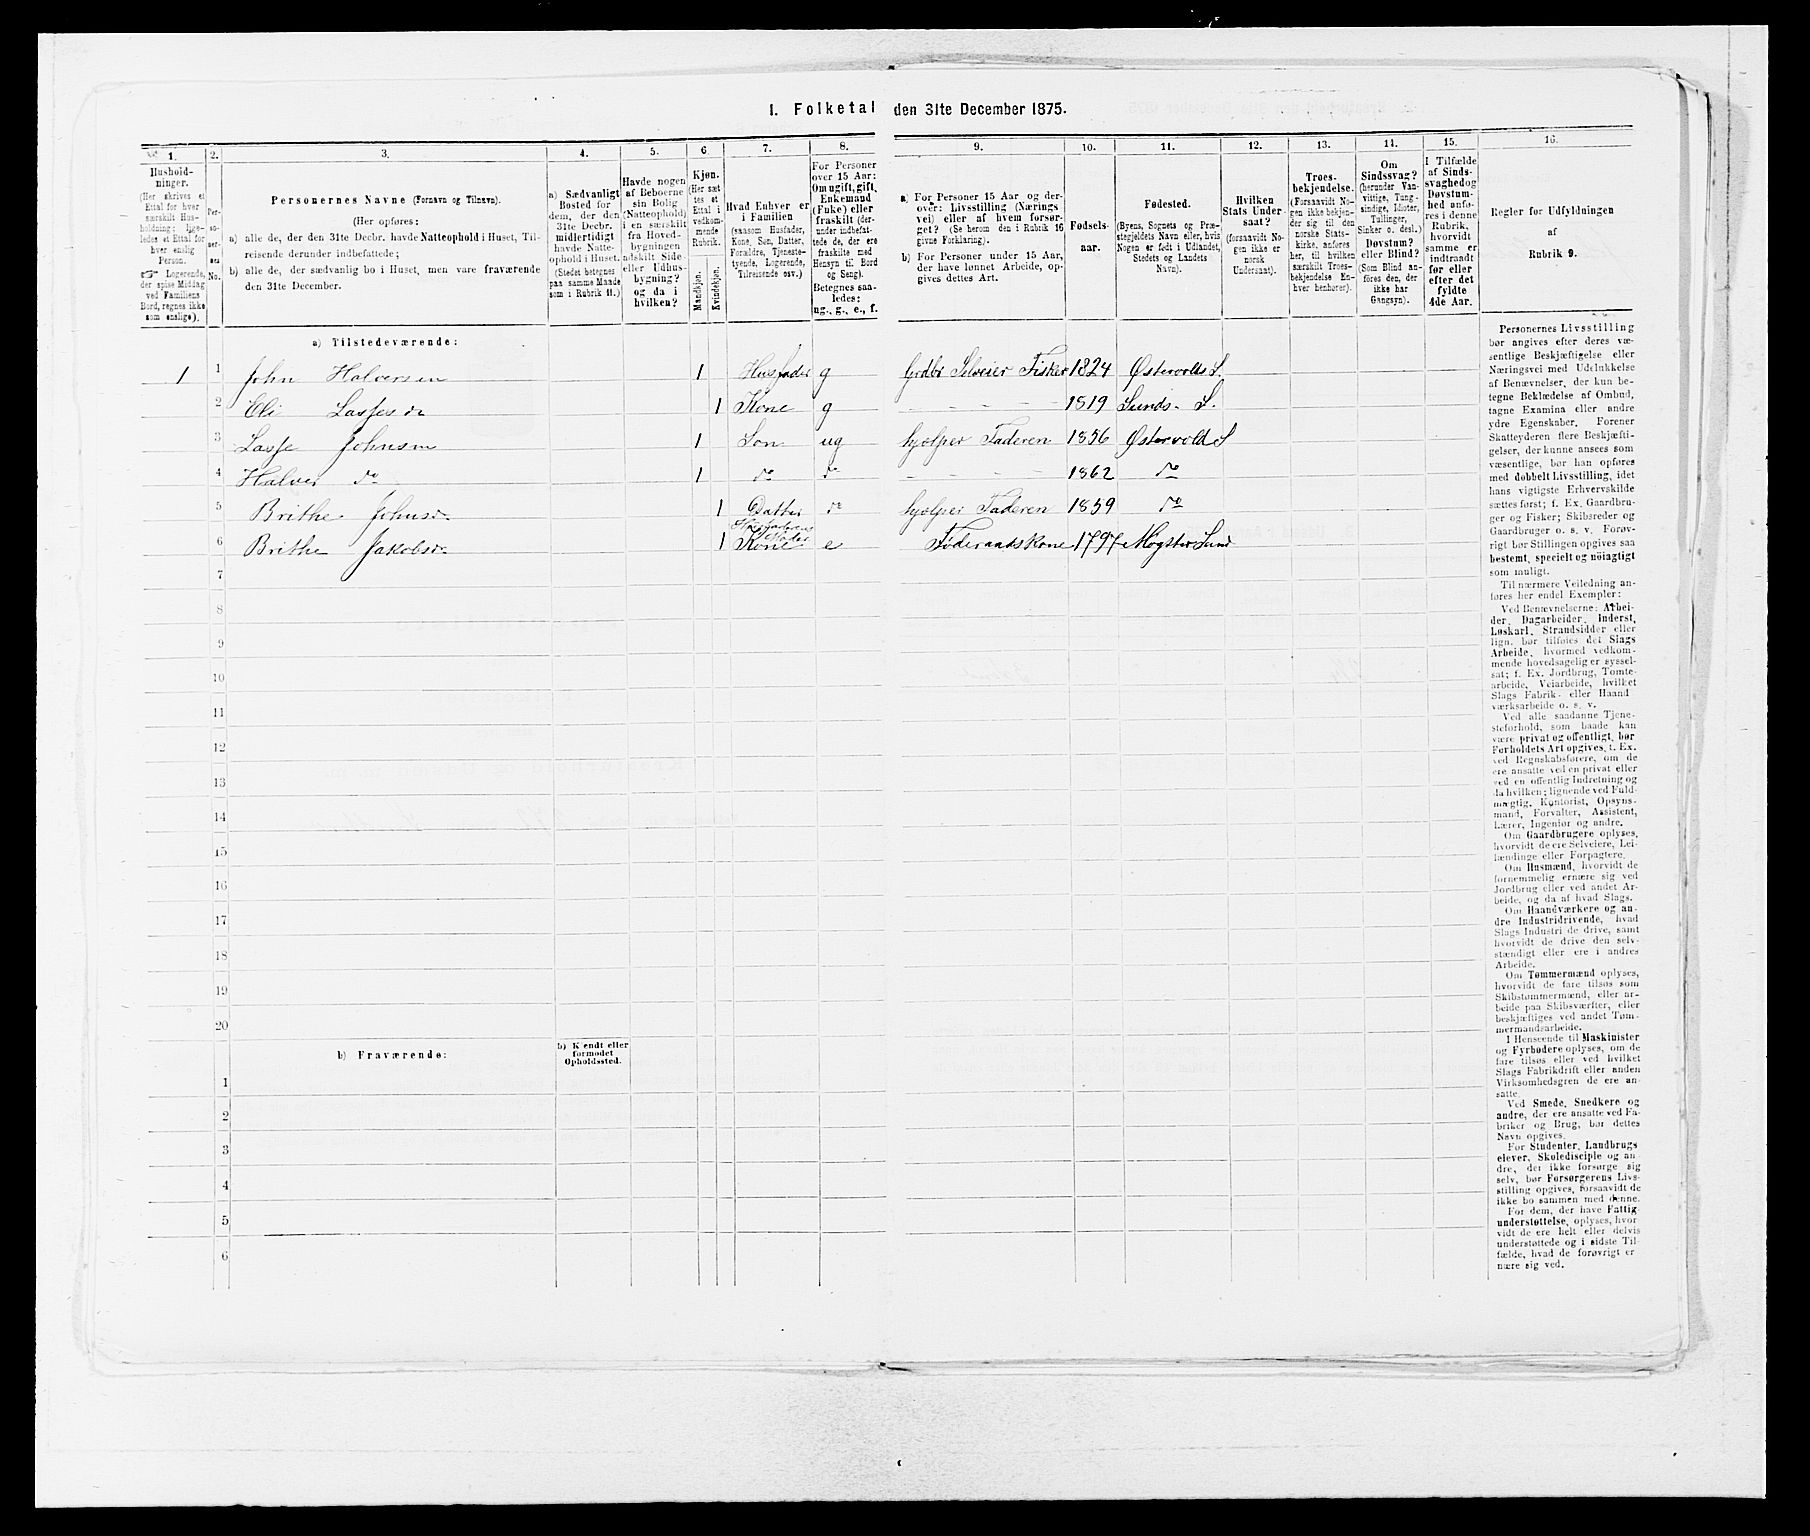 I. Folketal den 31te December 1875.
1. 2. 3. 4. 5. 6. 7. 8. 9. 10. 11. 12. 13. 14. 15. 16.
Hushold-
ninger.
(Her skrives et
Ettal for hver
særskilt Hus-
holdning; lige-
ledes et Ettal for
hver enslig
Person.
☞ Logerende,
der spise Middag
ved Familiens
Bord, regnes ikke
som enslige).
Per-
so-
ner-
nes
No.
Personernes Navne (Fornavn og Tilnavn).
(Her opføres:
a) alle de, der den 31te Decbr. havde Natteophold i Huset, Til-
reisende derunder indbefattede;
b) alle de, der sædvanlig bo i Huset, men vare fraværende
den 31te December.
a) Sædvanligt
Bosted for
dem, der den
31te Decbr.
midlertidigt
havde Natte-
ophold i Huset.
(Stedet betegnes
paa samme Maade
som i Rubrik 11.)
Havde nogen
af Beboerne
sin Bolig
(Natteophold)
i en særskilt
fra Hoved-
bygningen
adskilt Side-
eller Udhus-
bygning?
og da i
hvilken?
Kjøn.
(Her sæt
tes et
Ettal i
vedkom-
mende
Rubrik.
Mandskjøn.
Kvindekjøn.
Hvad Enhver er
i Familien
(saasom Husfader,
Kone, Søn, Datter,
Forældre, Tjeneste-
tyende, Logerende,
Tilreisende osv.)
For Personer
over 15 Aar:
Om ugift, gift,
Enkemand
(Enke) eller
fraskilt (der-
under indbefat-
tede de, der ere
fraskilte med
Hensyn til Bord
og Seng).
Betegnes saa-
ledes:
ug., g., e., f.
a) For Personer 15 Aar og der-
over: Livsstilling (Nærings
vei) eller af hvem forsør-
get? (Se herom den i Rubrik 16
givne Forklaring).
b) For Personer under 15 Aar,
der have lønnet Arbeide, op-
gives dettes Art.
Fødsels-
aar.
Fødested.
(Byens, Sognets og Præ-
stegjeldets Navn eller, hvis
Nogen er født i Udlandet,
Stedets og Landets
Navn).
Hvilken
Stats Under-
saat?
(forsaavidt No-
gen ikke er
norsk
Undersaat).
Troes-
bekjendelse.
(Forsaavidt No-
gen ikke bekjen-
der sig til den
norske Stats-
kirke, anføres
her, til hvilken
særskilt Troes-
bekjendelse En-
hver henhører).
Om
Sindssvag?
(herunder Van-
vittige, Tung-
sindige, Idioter,
Tullinger,
Sinker o. desl.)
Døvstum?
eller Blind?
(Som Blind an-
føres den, der
ikke har
Gangsyn).
I Tilfælde
af Sinds-
svaghed og
Døvstum-
hed anfø-
res i denne
Rubrik,
hvorvidt
samme er
indtraadt
før eller
efter det
fyldte
4de Aar.
Regler for Udfyldningen
af
Rubrik 9.
a) Tilstedeværende:
1 1 John Halversen 1 Husfader g Grdbr Selveier Fisker 1824 Østervolds S.
2 Eli Lassesdr 1 Kone g - - - - 1819 Sunds- S.
3 Lasse Johnsen 1 Søn ug hjelper Faderen 1856 Østervold S
4 Halver do 1 do do - - - - 1862 do
5 Brithe Johnsdr 1 Datter do hjelper Faderen 1859 do
Husfaderens
Moder
6 Brithe Jakobsdr 1 Kone e Føderaadskone 1797 Møgster Sund
7
8
9
10
11
12
13
14
15
16
17
18
19
20
b) Fraværende:
b) Kjendt eller
formodet
Opholdssted.
1
2
3
4
5
6
Personernes Livsstilling
bør angives efter deres væ-
sentlige Beskjæftigelse eller
Næringsvei med Udelukkelse
af Benævnelser, der kun be-
tegne Beklædelse af Ombud,
tagne Examina eller andre
ydre Egenskaber. Forener
Skatteyderen flere Beskjæfti-
gelser, der kunne ansees som
væsentlige, bør han opføres
med dobbelt Livsstilling, idet
hans vigtigste Erhvervskilde
sættes først; f. Ex. Gaardbru-
ger og Fisker; Skibsreder og
Gaardbruger o. s. v. Forøv-
rigt bør Stillingen opgives saa
bestemt, specielt og nøiagtigt
som muligt.
Til nærmere Veiledning an-
føres her endel Exempler:
Ved Benævnelserne: Arbei-
der, Dagarbeider, Inderst,
Løskarl, Strandsidder eller
lign. bør tilføies det Slags
Arbeide, hvormed vedkom-
mende hovedsagelig er syssel-
sat; f. Ex. Jordbrug, Tomte-
arbeide, Veiarbeide, hvilket
Slags Fabrik- eller Haand
værksarbeide o. s. v.
Ved alle saadanne Tjene-
steforhold, som baade kan
være privat og offentligt, bør
Forholdets Art opgives, t. Ex.
ved Regnskabsførere, om de
ere ansatte ved en privat eller
ved en offentlig Indretning og
da hvilken; lignende ved Fuld-
mægtig, Kontorist, Opsyns-
mand, Forvalter, Assistent,
Lærer, Ingeniør og andre.
Om Gaardbrugere oplyses,
hvorvidt de ere Selveiere, Lei-
lændinge eller Forpagtere.
Om Husmænd, hvorvidt de
fornemmelig ernære sig ved
Jordbrug eller ved andet Ar-
beide, og da af hvad Slags.
Om Haandværkere og an-
dre Industridrivende, hvad
Slags Industri de drive, samt
hvorvidt de drive den selv-
stændigt eller ere i andres
Arbeide.
Om Tømmermænd oplyses,
hvorvidt de fare tilsøs som
Skibstømmermænd, eller ar-
beide paa Skibsværfter, eller
beskjæftiges ved andet Tøm-
mermandsarbeide.
I Henseende til Maskinister
og Fyrbødere oplyses, om de
fare tilsøs eller ved hvilket
Slags Fabrikdrift eller anden
Virksomhedsgren de ere an-
satte.
Ved Smede, Snedkere og
andre, der ere ansatte ved Fa-
briker og Brug, bør dettes
Navn opgives.
For Studenter, Landbrugs
elever, Skoledisciple og an-
dre, der ikke forsørge sig
selv, bør Forsørgerens Livs-
stilling opgives, forsaavidt de
ikke bo sammen med denne.
For dem, der have Fattig-
understøttelse, oplyses, hvor
vidt de ere helt eller delvis
understøttede og i sidste Til-
fælde, hvad de forøvrigt er
nære sig ved.